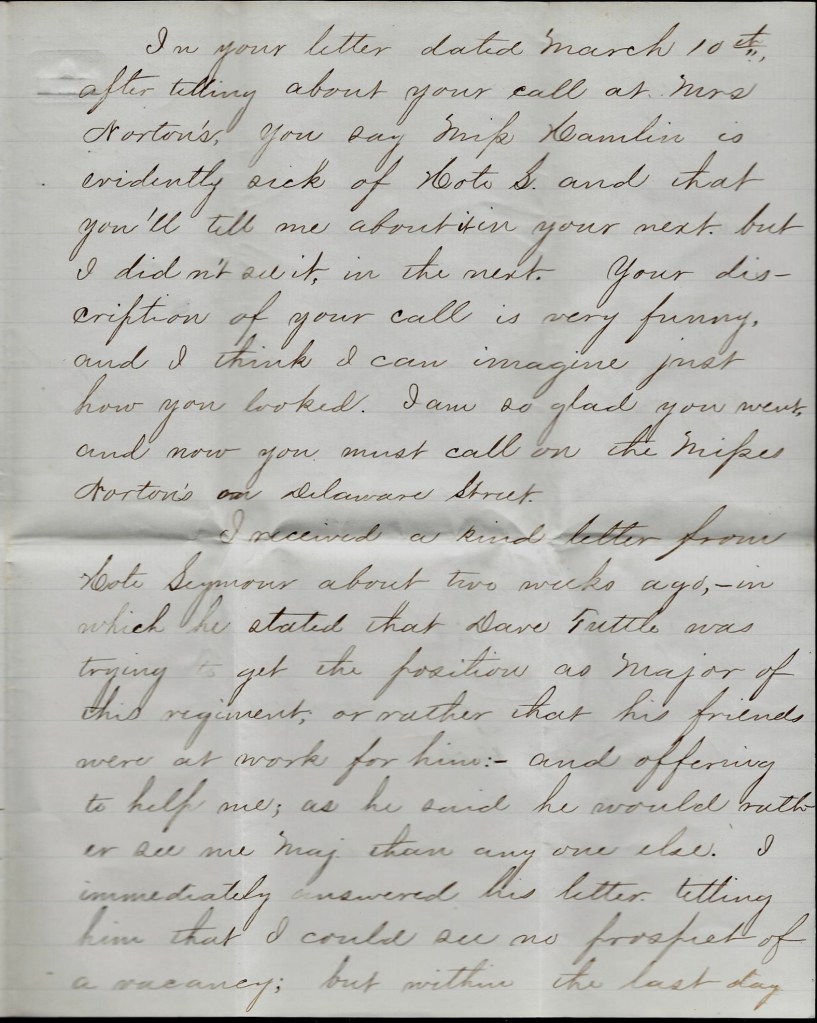 In your letter dated March 10th,
after telling about your call at Mrs
Norton's, you say Miss Hamlin is
evidently sick of Hote S. and that
you'll tell me about it in your next. but
I didn't see it, in the next. Your dis-
cription of your call is very funny,
and I think I can imagine just
how you looked. I am so glad you went,
and now you must call on the Misses
Norton's on Delaware Street.
I received a kind letter from
Hote Seymour about two weeks ago,- in
which he stated that Dave Tuttle was
trying to get the position as Major of
this regiment, or rather that his friends
were at work for him:- and offering
to help me; as he said he would rath-
er see me Maj. than any one else. I
immediately answered his letter telling
him that I could see no prospect of
a vacancy; but within the last day